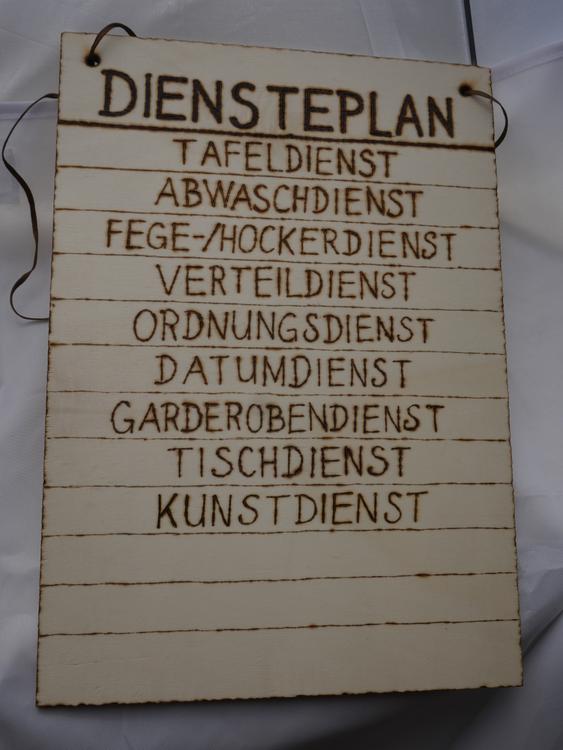 DIENSTEPLAN
TAFELDIENST
ABWASCHDIENST
FEGE-/HOCKERDIENST
VERTEILDIENST
ORDNUNGSDIENST
DATUMDIENST
GARDEROBENDIENST
TISCHDIENST
KUNSTDIENST